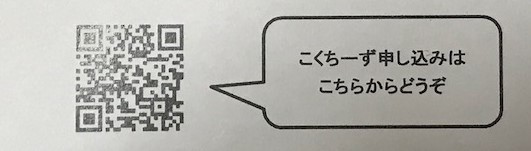 こくちーず申し込みは
こちらからどうぞ